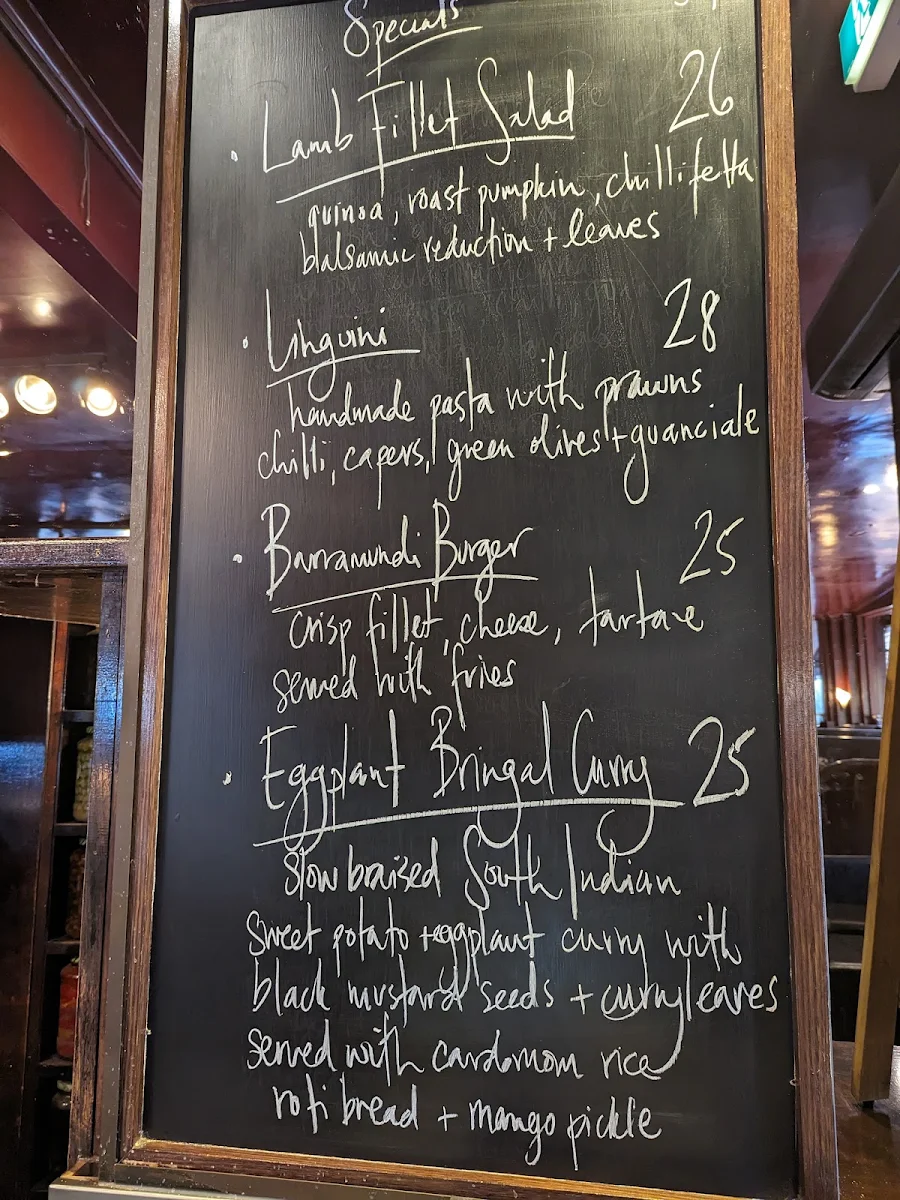 Specials
• Lamb Fillet Salad 26
quinoa, roast pumpkin, chilli fetta
blalsamic reduction + leaves
• Linguini 28
handmade pasta with prawns
chilli, capers, green olives + guanciale
• Barramundi Burger 25
crisp fillet, cheese, tartare
served with fries
• Eggplant Bringal Curry 25
slow braised South Indian
sweet potato + eggplant curry with
black mustard seeds + curry leaves
served with cardomom rice
roti bread + mango pickle